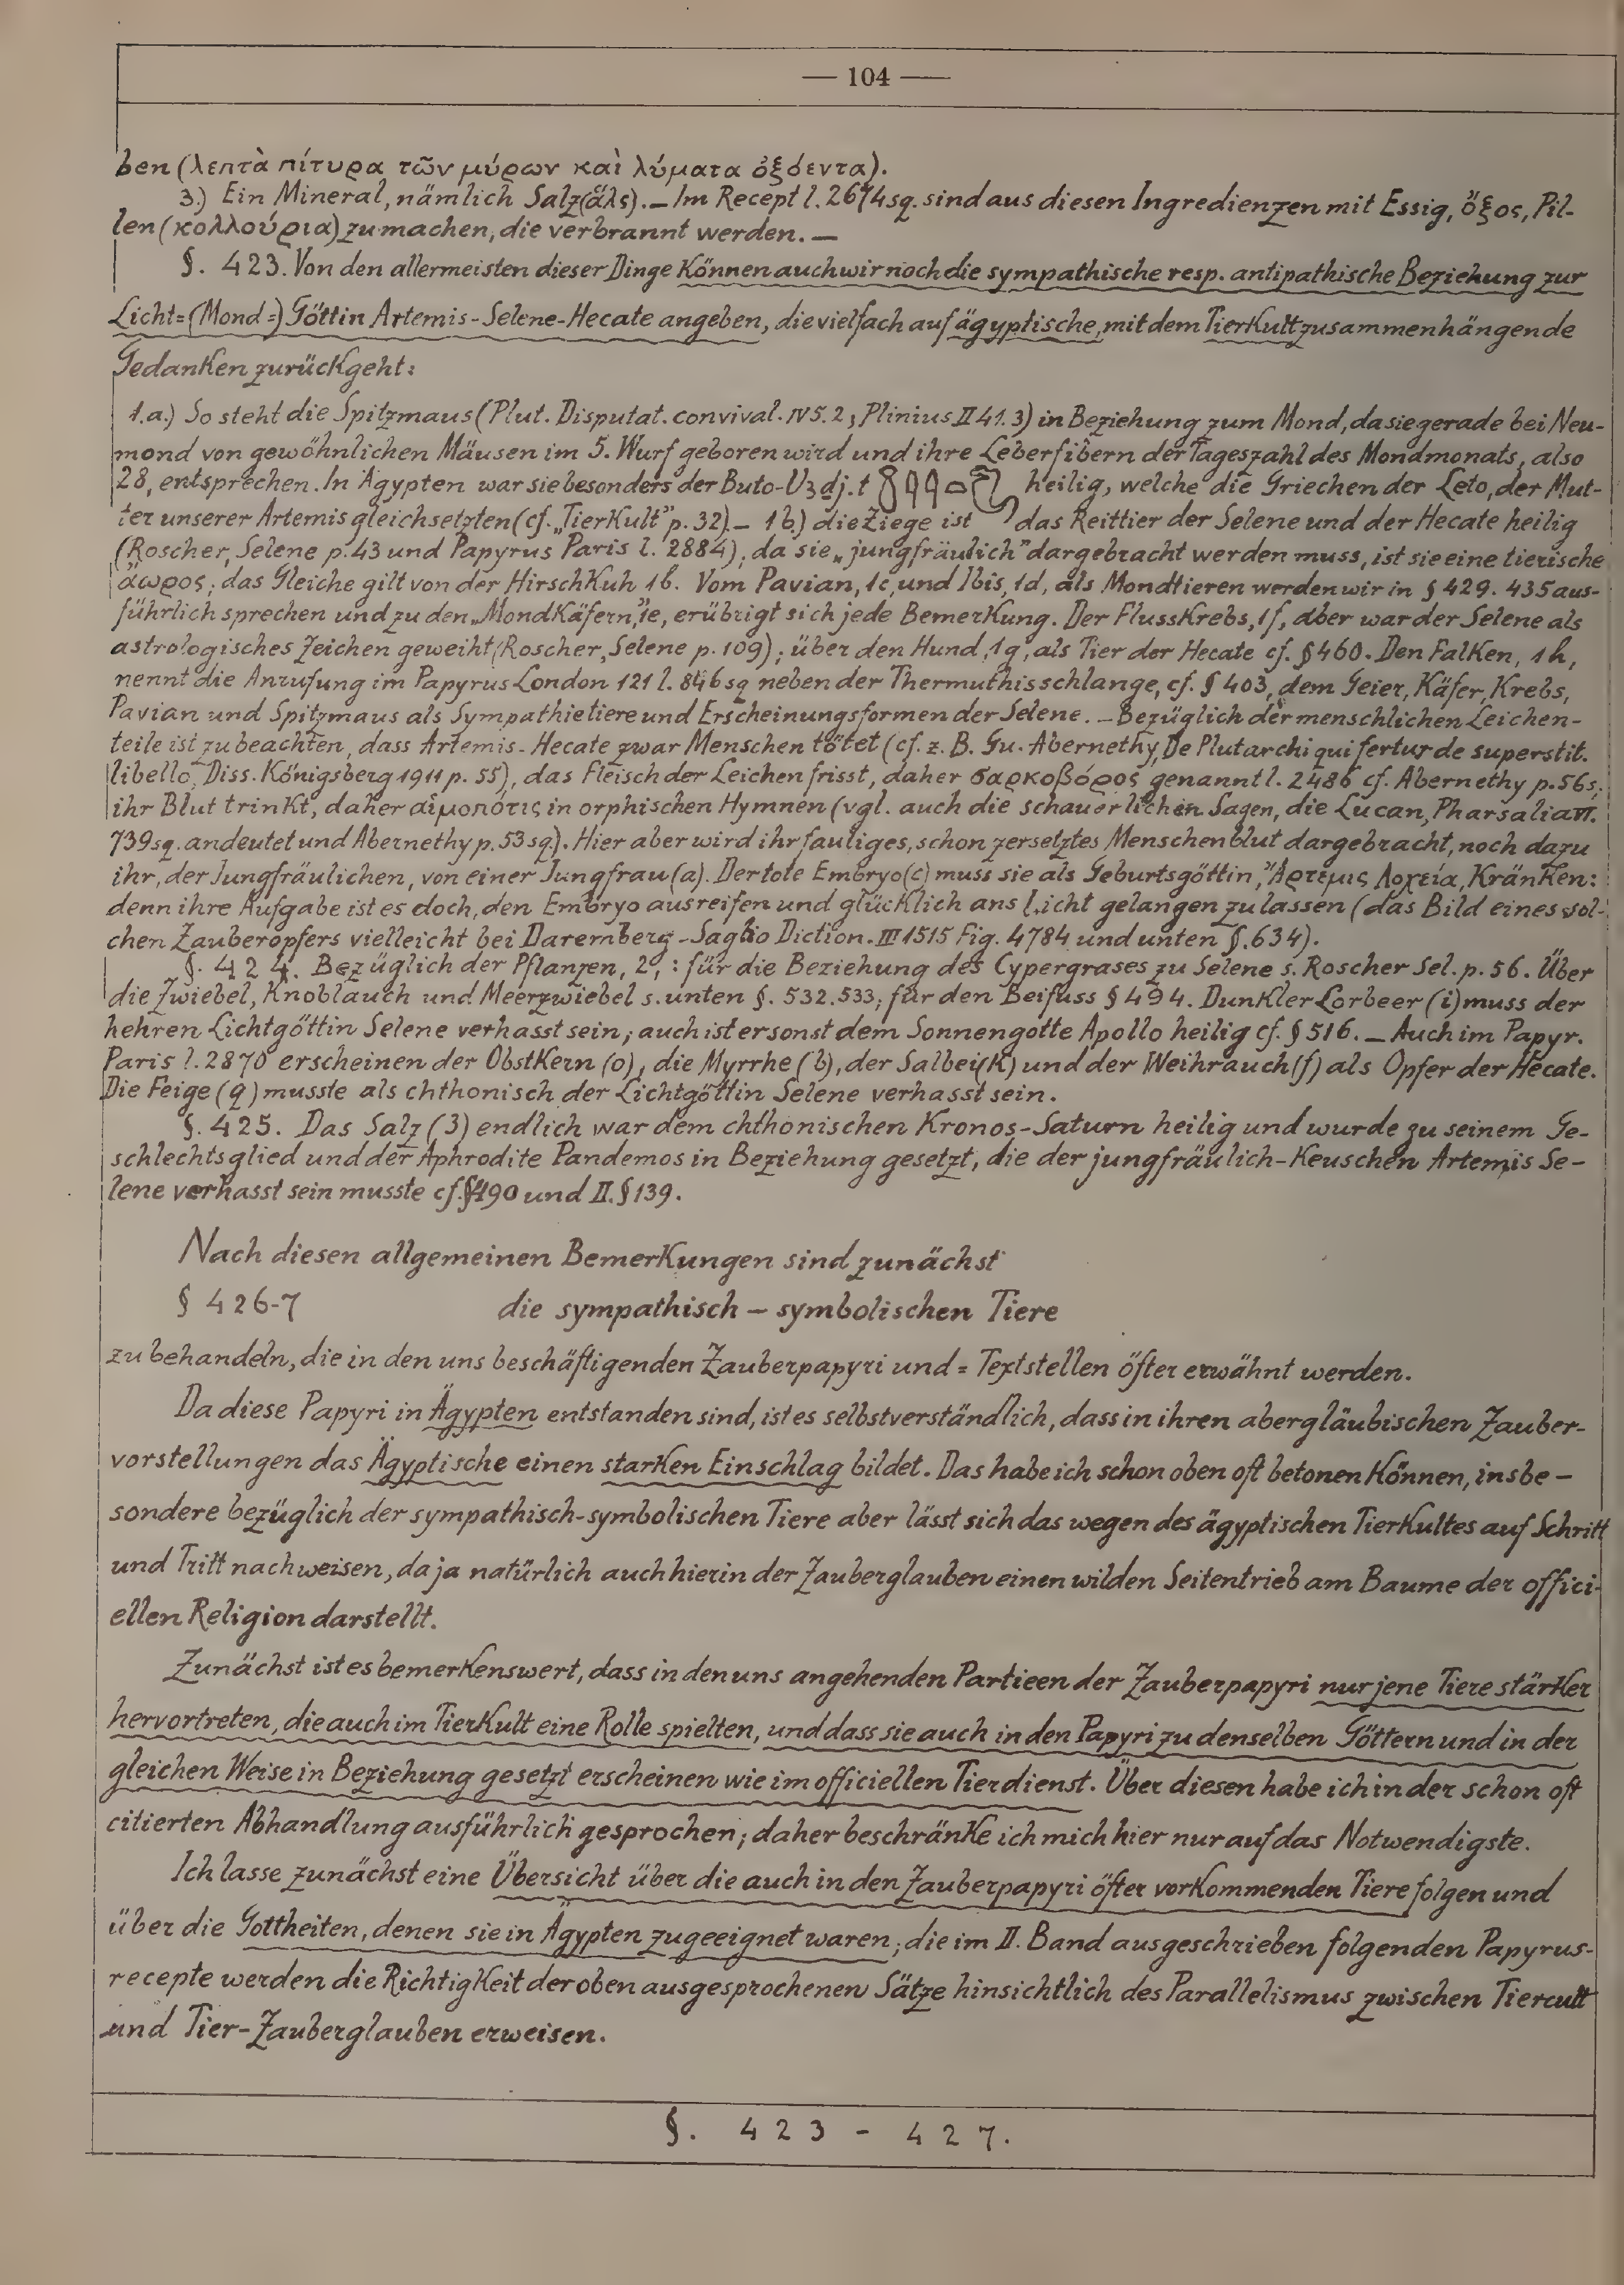 — 104 —
ben (λεπτὰ πίτυρα τῶν μύρων καὶ λύματα ὀξόεντα).
3.) Ein Mineral, nämlich Salz (ἅλς). — Im Recept l. 2674 sq. sind aus diesen Ingredienzen mit Essig, ὄξος, Pil-
len (κολλούρια) zu machen, die verbrannt werden. —
§. 423. Von den allermeisten dieser Dinge können auch wir noch die sympathische resp. antipathische Beziehung zur
Licht=(Mond=) Göttin Artemis-Selene-Hecate angeben, die vielfach auf ägyptische, mit dem Tierkult zusammenhängende
Gedanken zurückgeht:
1.a.) So steht die Spitzmaus (Plut. Disputat. convival. IV 5. 2; Plinius II 41. 3) in Beziehung zum Mond, da sie gerade bei Neu-
mond von gewöhnlichen Mäusen im 5. Wurf geboren wird und ihre Leberfibern der Tageszahl des Mondmonats, also
28, entsprechen. In Ägypten war sie besonders der Buto-Uȝdj.t heilig, welche die Griechen der Leto, der Mut-
ter unserer Artemis gleichsetzten (cf. „Tierkult" p. 32). — 1b.) die Ziege ist das Reittier der Selene und der Hecate heilig
(Roscher, Selene p. 43 und Papyrus Paris l. 2884); da sie „jungfräulich" dargebracht werden muss, ist sie eine tierische
ἄωρος; das Gleiche gilt von der Hirschkuh 1b. Vom Pavian, 1c, und Ibis, 1d, als Mondtieren werden wir in § 429. 435 aus-
führlich sprechen und zu den „Mondkäfern", 1e, erübrigt sich jede Bemerkung. Der Flusskrebs, 1f, aber war der Selene als
astrologisches Zeichen geweiht (Roscher, Selene p. 109); über den Hund, 1g, als Tier der Hecate cf. § 460. Den Falken, 1h,
nennt die Anrufung im Papyrus London 121 l. 846 sq neben der Thermuthisschlange, cf. § 403, dem Geier, Käfer, Krebs,
Pavian und Spitzmaus als Sympathietiere und Erscheinungsformen der Selene. — Bezüglich der menschlichen Leichen-
teile ist zu beachten, dass Artemis-Hecate zwar Menschen tötet (cf. z. B. Gu. Abernethy, De Plutarchi qui fertur de superstit.
libello, Diss. Königsberg 1911 p. 55), das Fleisch der Leichen frisst, daher σαρκοβόρος genannt l. 2486 cf. Abernethy p. 56s,
ihr Blut trinkt, daher αἱμοπότις in orphischen Hymnen (vgl. auch die schauerlichen Sagen, die Lucan, Pharsalia VI.
739 sq. andeutet und Abernethy p. 53 sq.). Hier aber wird ihr fauliges, schon zersetztes Menschenblut dargebracht, noch dazu
ihr, der Jungfräulichen, von einer Jungfrau (a). Der tote Embryo (c) muss sie als Geburtsgöttin, Ἄρτεμις Λοχεία, kränken:
denn ihre Aufgabe ist es doch, den Embryo ausreifen und glücklich ans Licht gelangen zu lassen (das Bild eines sol-
chen Zauberopfers vielleicht bei Daremberg-Saglio Diction. III 1515 Fig. 4784 und unten §. 634).
§. 424. Bezüglich der Pflanzen, 2, : für die Beziehung des Cypergrases zu Selene s. Roscher Sel. p. 56. Über
die Zwiebel, Knoblauch und Meerzwiebel s. unten §. 532. 533; für den Beifuss § 494. Dunkler Lorbeer (i) muss der
hehren Lichtgöttin Selene verhasst sein; auch ist er sonst dem Sonnengotte Apollo heilig cf. § 516. — Auch im Papyr.
Paris l. 2870 erscheinen der Obstkern (o), die Myrrhe (b), der Salbei (k) und der Weihrauch (f) als Opfer der Hecate.
Die Feige (q) musste als chthonisch der Lichtgöttin Selene verhasst sein.
§. 425. Das Salz (3) endlich war dem chthonischen Kronos-Saturn heilig und wurde zu seinem Ge-
schlechtsglied und der Aphrodite Pandemos in Beziehung gesetzt, die der jungfräulich-keuschen Artemis Se-
lene verhasst sein musste cf. § 490 und II. § 139.
Nach diesen allgemeinen Bemerkungen sind zunächst
§ 426-7 die sympathisch — symbolischen Tiere
zu behandeln, die in den uns beschäftigenden Zauberpapyri und = Textstellen öfter erwähnt werden.
Da diese Papyri in Ägypten entstanden sind, ist es selbstverständlich, dass in ihren abergläubischen Zauber-
vorstellungen das Ägyptische einen starken Einschlag bildet. Das habe ich schon oben oft betonen können, insbe-
sondere bezüglich der sympathisch-symbolischen Tiere aber lässt sich das wegen des ägyptischen Tierkultes auf Schritt
und Tritt nachweisen, da ja natürlich auch hierin der Zauberglauben einen wilden Seitentrieb am Baume der offici-
ellen Religion darstellt.
Zunächst ist es bemerkenswert, dass in den uns angehenden Partieen der Zauberpapyri nur jene Tiere stärker
hervortreten, die auch im Tierkult eine Rolle spielten, und dass sie auch in den Papyri zu denselben Göttern und in der
gleichen Weise in Beziehung gesetzt erscheinen wie im officiellen Tierdienst. Über diesen habe ich in der schon oft
citierten Abhandlung ausführlich gesprochen; daher beschränke ich mich hier nur auf das Notwendigste.
Ich lasse zunächst eine Übersicht über die auch in den Zauberpapyri öfter vorkommenden Tiere folgen und
über die Gottheiten, denen sie in Ägypten zugeeignet waren; die im II. Band ausgeschrieben folgenden Papyrus-
recepte werden die Richtigkeit der oben ausgesprochenen Sätze hinsichtlich des Parallelismus zwischen Tiercult
und Tier-Zauberglauben erweisen.
§. 423 - 427.